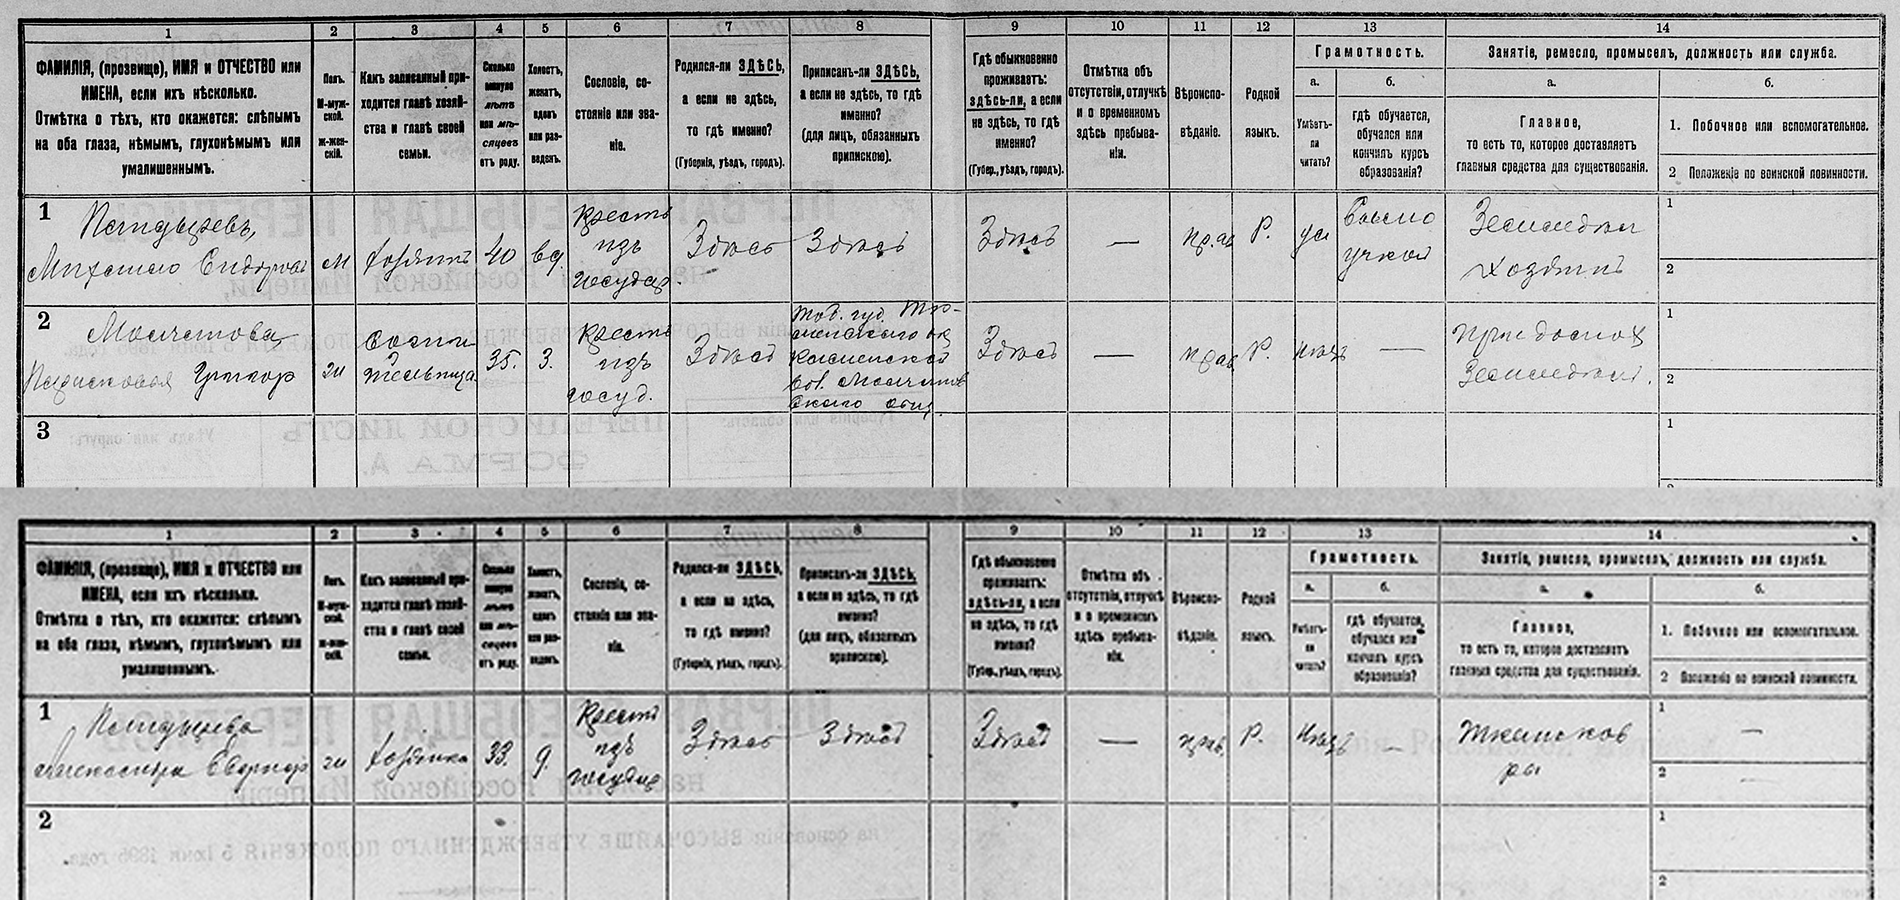 1
2
3
4
5
6
7
8
9
10
11
12
13
14
ФАМИЛІЯ, (прозвище), ИМЯ и ОТЧЕСТВО или
ИМЕНА, если ихъ нѣсколько.
Отмѣтка о тѣхъ, кто окажется: слѣпымъ
на оба глаза, нѣмымъ, глухонѣмымъ или
умалишеннымъ.
Полъ.
М-муж-
ской.
ж-жен-
скій.
Какъ записанный при-
ходится главѣ хозяй-
ства и главѣ своей
семьи.
Сколько
минуло
лѣтъ
или мѣ-
сяцевъ
отъ роду.
Холостъ,
женатъ,
вдовъ
или раз-
веденъ.
Сословіе, со-
стояніе или зва-
ніе.
Родился-ли ЗДѢСЬ,
а если не здѣсь,
то гдѣ именно?
(Губернія, уѣздъ, городъ).
Приписанъ-ли ЗДѢСЬ,
а если не здѣсь, то гдѣ
именно?
(для лицъ, обязанныхъ
припискою).
Гдѣ обыкновенно
проживаетъ:
здѣсь-ли, а если
не здѣсь, то гдѣ
именно?
(Губер., уѣздъ, городъ).
Отмѣтка объ
отсутствіи, отлучкѣ
и о временномъ
здѣсь пребыва-
ніи.
Вѣроиспо-
вѣданіе.
Родной
языкъ.
Грамотность.
а.
Умѣетъ-
ли
читать?
б.
гдѣ обучается,
обучался или
кончилъ курсъ
образованія?
Занятіе, ремесло, промыселъ, должность или служба.
а.
Главное,
то есть то, которое доставляетъ
главныя средства для существованія.
б.
1. Побочное или вспомогательное.
2 Положеніе по воинской повинности.
1
Михаило Сидоровъ
м
хозяинъ
40
вд.
Крестъ
изъ
государ.
Здѣсь
Здѣсь
Здѣсь
—
прав
Р.
1
2
хозяинъ
2
Молчанова
ж
35.
З.
Крестъ
изъ
госуд.
Здѣсь
Тоб. губ. Тю-
менскаго ок
Здѣсь
—
прав
Р.
—
1
2
3
1
2
1
2
3
4
5
6
7
8
9
10
11
12
13
14
ФАМИЛІЯ, (прозвище), ИМЯ и ОТЧЕСТВО или
ИМЕНА, если ихъ нѣсколько.
Отмѣтка о тѣхъ, кто окажется: слѣпымъ
на оба глаза, нѣмымъ, глухонѣмымъ или
умалишеннымъ.
Полъ.
М-муж-
ской.
ж-жен-
скій.
Какъ записанный при-
ходится главѣ хозяй-
ства и главѣ своей
семьи.
Сколько
минуло
лѣтъ
или мѣ-
сяцевъ
отъ роду.
Холостъ,
женатъ,
вдовъ
или раз-
веденъ.
Сословіе, со-
стояніе или зва-
ніе.
Родился-ли ЗДѢСЬ,
а если не здѣсь,
то гдѣ именно?
(Губернія, уѣздъ, городъ).
Приписанъ-ли ЗДѢСЬ,
а если не здѣсь, то гдѣ
именно?
(для лицъ, обязанныхъ
припискою).
Гдѣ обыкновенно
проживаетъ:
здѣсь-ли, а если
не здѣсь, то гдѣ
именно?
(Губер., уѣздъ, городъ).
Отмѣтка объ
отсутствіи, отлучкѣ
и о временномъ
здѣсь пребыва-
ніи.
Вѣроиспо-
вѣданіе.
Родной
языкъ.
Грамотность.
а.
Умѣетъ-
ли
читать?
б.
гдѣ обучается,
обучался или
кончилъ курсъ
образованія?
Занятіе, ремесло, промыселъ, должность или служба.
а.
Главное,
то есть то, которое доставляетъ
главныя средства для существованія.
б.
1. Побочное или вспомогательное.
2 Положеніе по воинской повинности.
1
ж
хозяйка
33.
д.
Крестъ
изъ
государ
Здѣсь
Здѣсь
Здѣсь
—
прав.
Р.
—
1 —
2 —
2
1
2